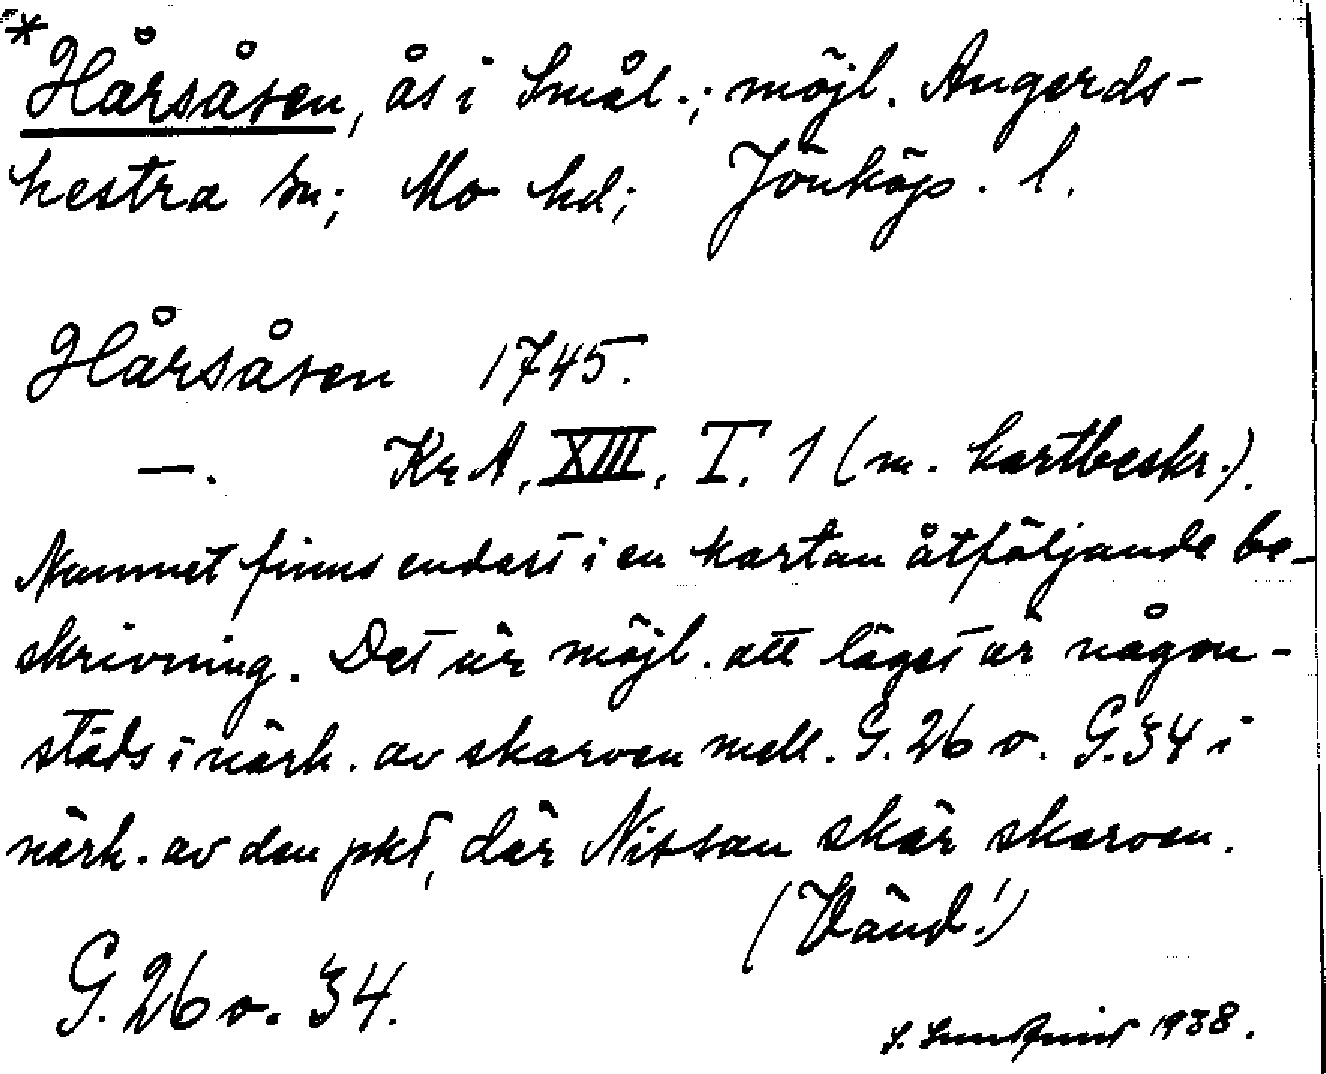 *Hårsåsen, ås i Smål.; möjl. Angerds-
hestra sn; Mo hd; Jönköp. l.
Hårsåsen 1745.
—. KrA, XIII, I. 1 (m. kartbeskr.).
Namnet finns endast i en kartan åtföljande be-
skrivning. Det är möjl. att läget är någon-
städs i närh. av skarven mell. G.26 o. G.34 i
närh. av den pkt, där Nissan skär skarven.
(Vänd!)
G.26 o. 34.
1938.